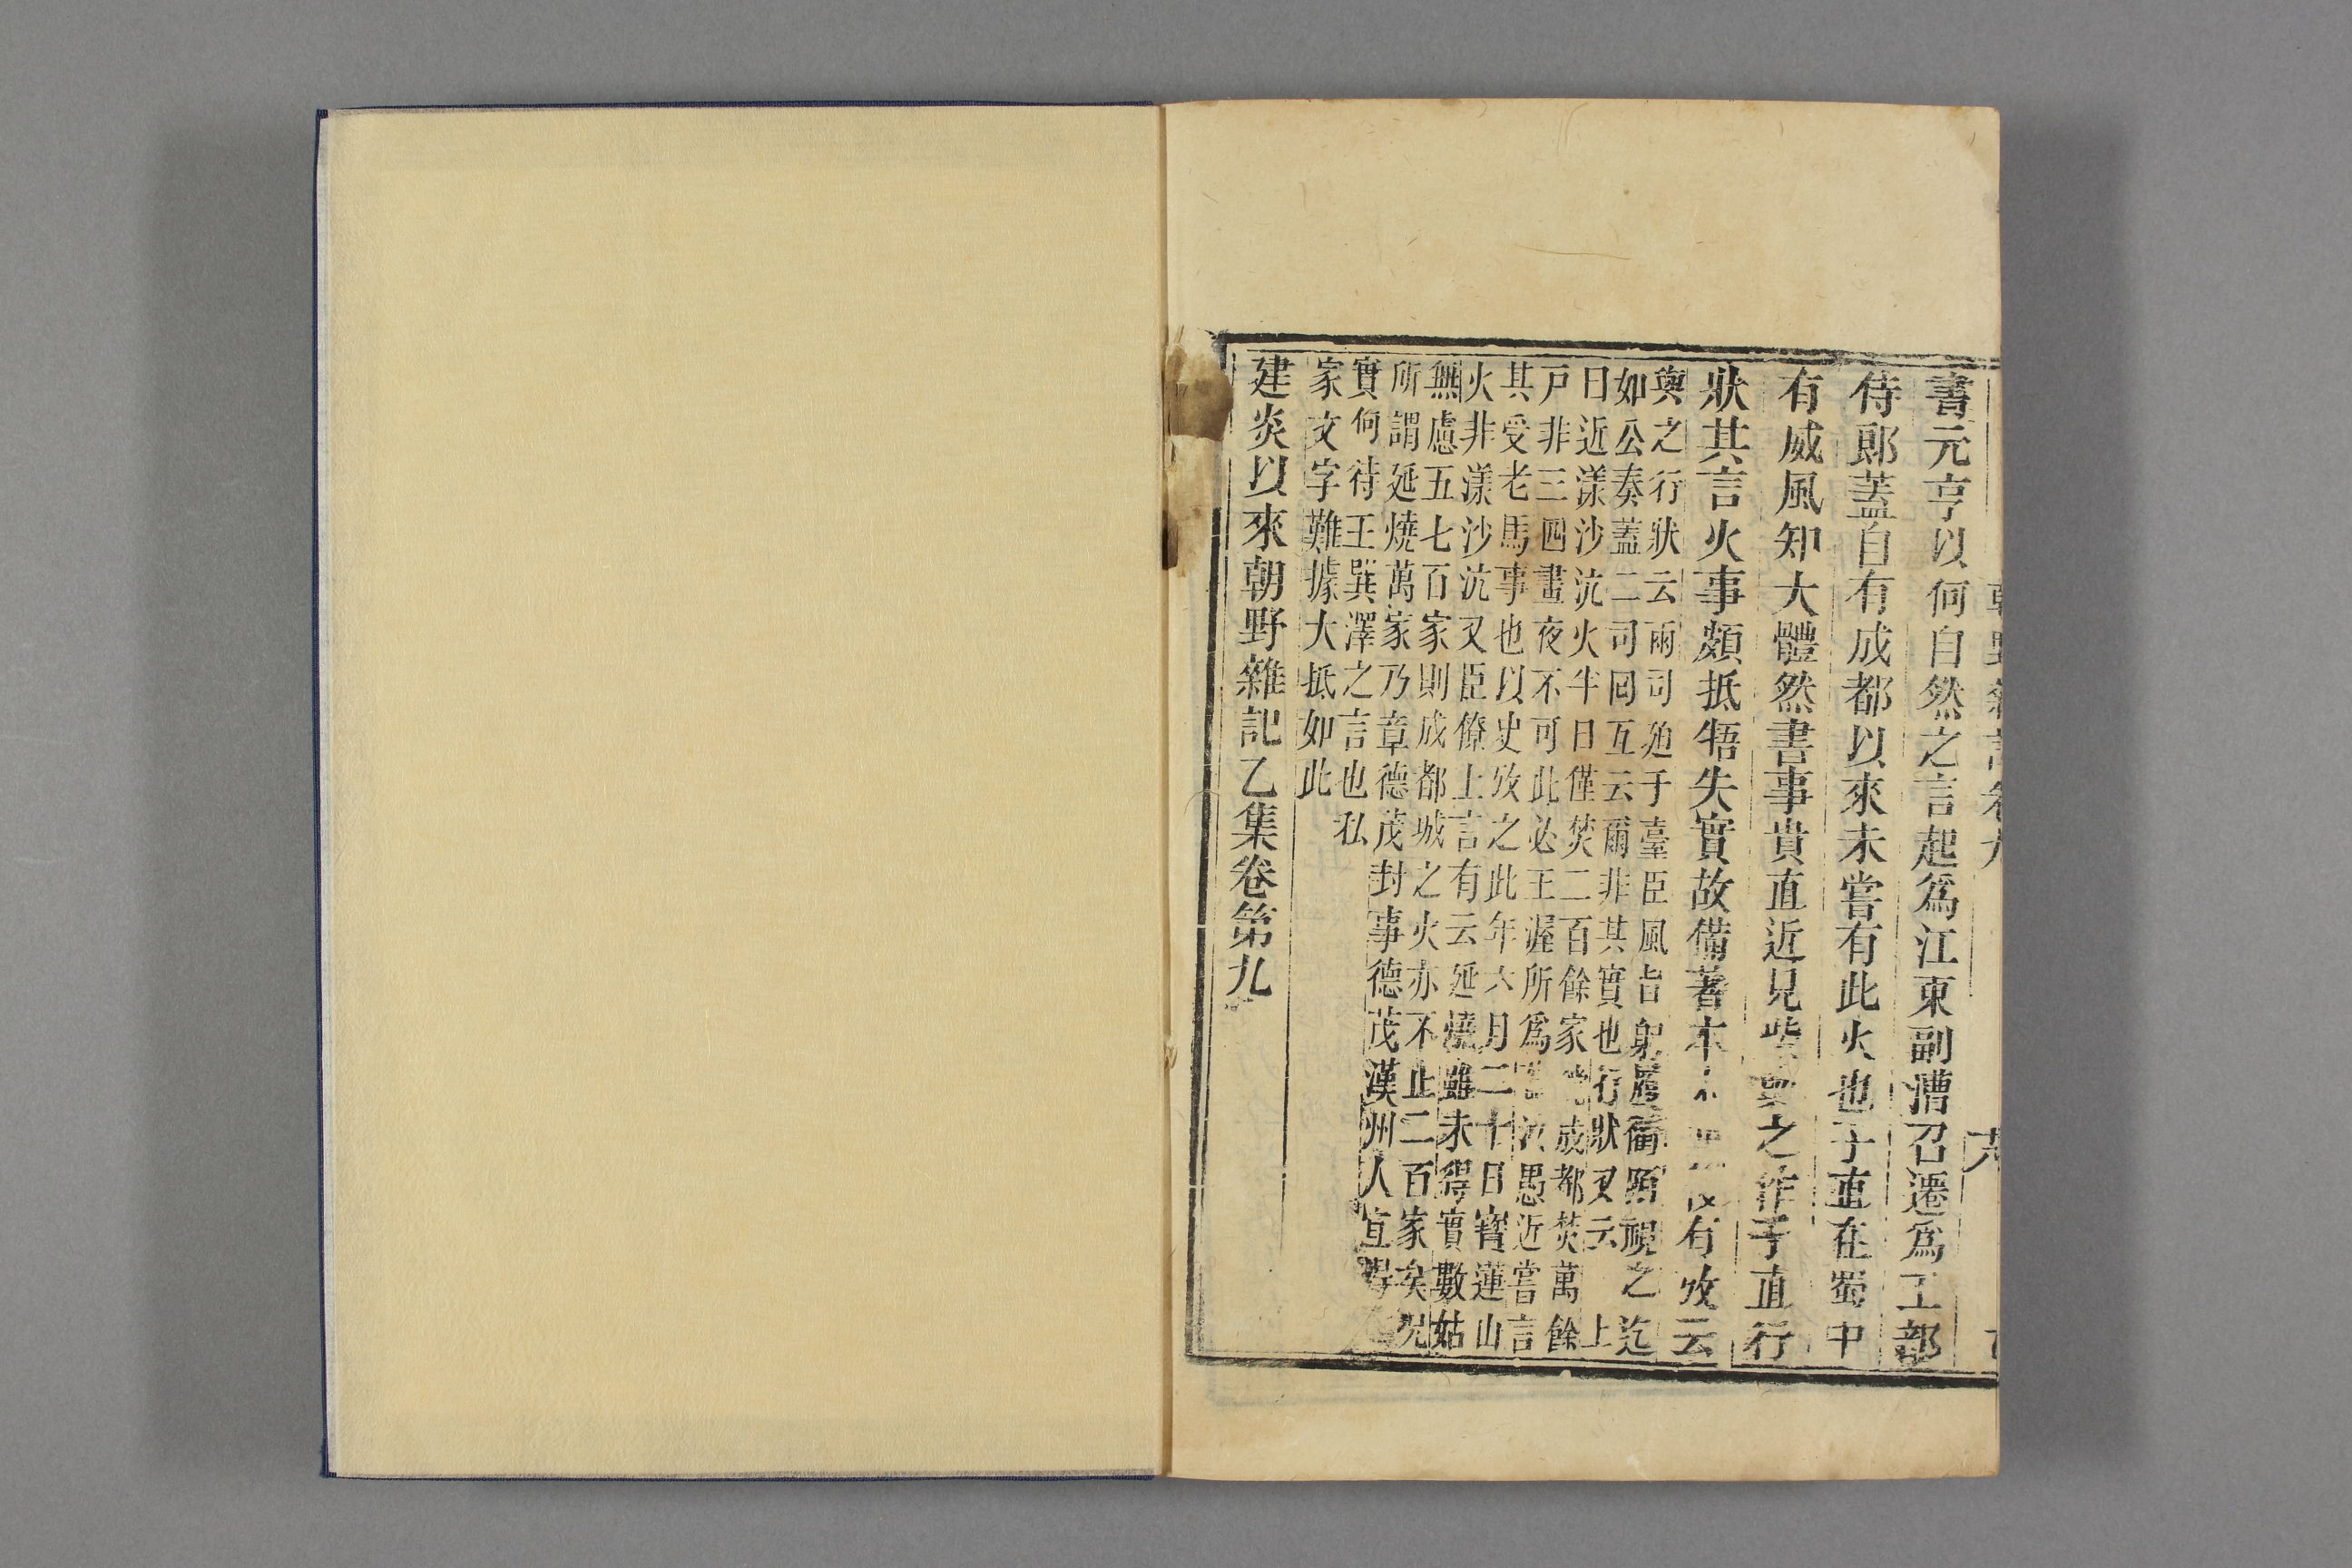 書元亨以何自然之言起爲江東副漕召遷爲工部
侍郎蓋自有成都以來未嘗有此火也子直在蜀中
有威風知大體然書事貴直近見柴㒜之作子直行
狀其言火事頗抵牾失實故備著本末 有攷云
與之行狀云兩司廹于臺臣風旨躬履徧照視之迄
如公奏蓋二司回互云爾非其實也行狀又云 上
曰近漾沙沆火半日僅焚二百餘家 成都焚萬餘
戸非三四晝夜不可此必王渥所爲 愚近嘗言
其受老馬事也以史攷之此年六月二十日寳蓮山
火非漾沙沆又臣僚上言有云延燒雖未得實數姑
無慮五七百家則成都城之火亦不止二百家矣况
所謂延燒萬家乃章德茂封事德茂漢州人宜得
實何待王巽澤之言也私
家文字難據大抵如此
建炎以來朝野雜記乙集卷第九